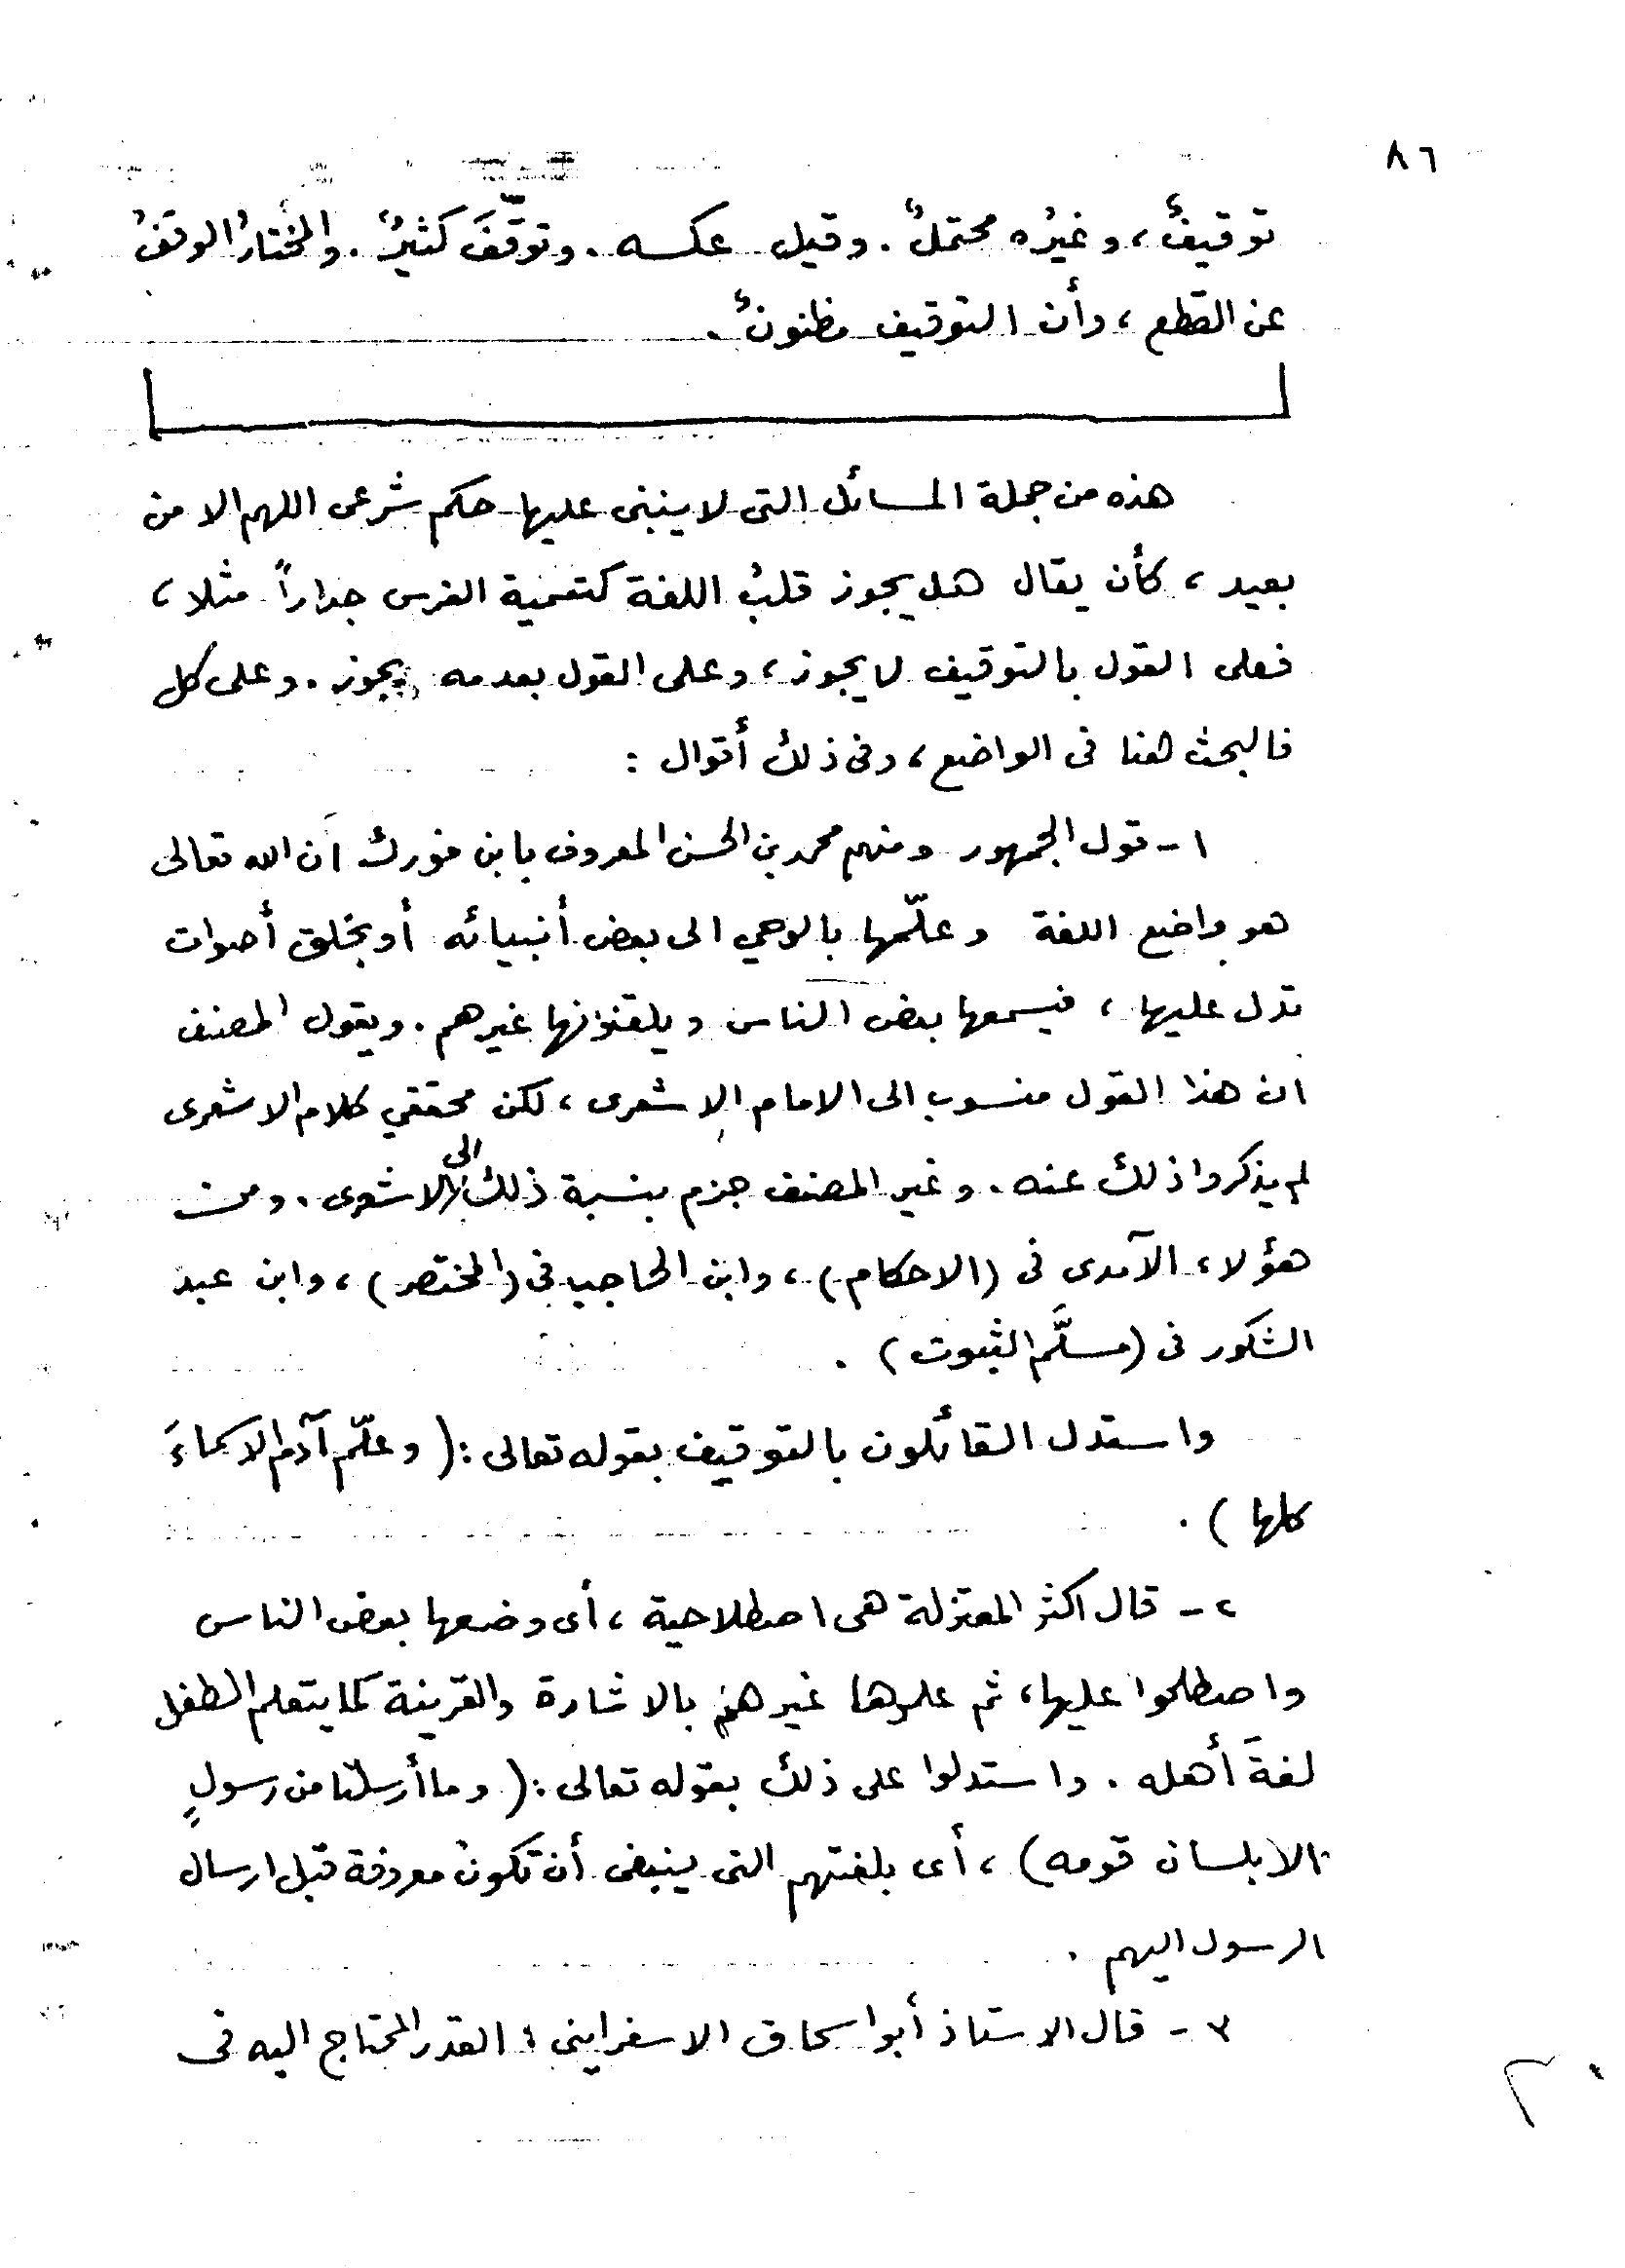 ٨٦
توقيفٌ ، وغيرُه محتملٌ . وقيل عكسه . وتوقّفَ كثيرٌ . والمختارُ الوقفُ
عن القطع ، وأن التوقيف مظنونٌ .
هذه من جملة المسائل التى لا ينبنى عليها حكم شرعى اللهم الا من
بعيد ، كأن يقال هل يجوز قلبُ اللغة كتسمية الفرس جداراً مثلا ،
فعلى القول بالتوقيف لا يجوز ، وعلى القول بعدمه يجوز . وعلى كل
فالبحث هنا فى الواضع ، وفى ذلك أقوال :
١ - قول الجمهور ومنهم محمد بن الحسن المعروف بابن فورك أن الله تعالى
هو واضع اللغة وعلّمها بالوحي الى بعض أنبيائه أو بخلق أصوات
تدل عليها ، فيسمعها بعض الناس ويلقنونها غيرهم . ويقول المصنف
ان هذا القول منسوب الى الامام الاشعرى ، لكن محققي كلام الاشعرى
لم يذكروا ذلك عنه . وغير المصنف جزم بنسبة ذلك الى الاشعرى . ومن
هؤلاء الآمدى فى (الاحكام) ، وابن الحاجب فى (المختصر) ، وابن عبد
الشكور فى (مسلَّم الثبوت) .
واستدل القائلون بالتوقيف بقوله تعالى : ( وعلّم آدم الاسماءَ
كلها ) .
٢ - قال اكثر المعتزلة هى اصطلاحية ، أى وضعها بعض الناس
واصطلحوا عليها ، ثم علموها غيرهم بالاشارة والقرينة كما يتعلم الطفل
لغةَ أهله . واستدلوا على ذلك بقوله تعالى : ( وما أرسلنا من رسولٍ
الا بلسان قومه) ، أى بلغتهم التى ينبغى أن تكون معروفة قبل ارسال
الرسول اليهم .
٣ - قال الاستاذ أبو اسحاق الاسفراينى : القدر المحتاج اليه فى